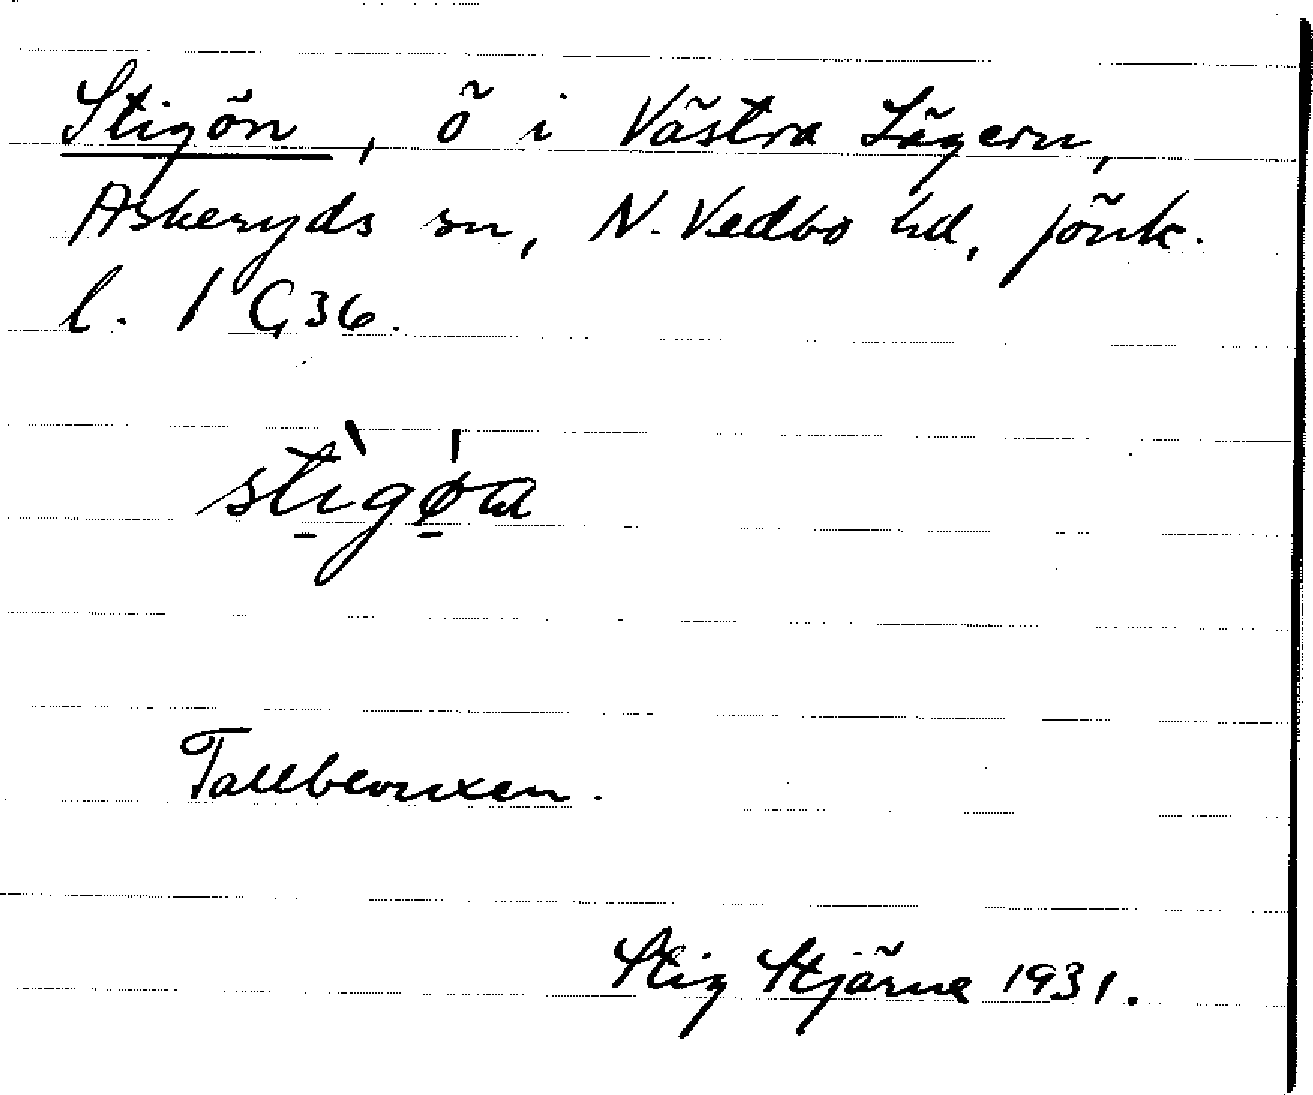 Stigön, ö i Västra Lägern,
Askeryds sn, N. Vedbo hd, Jönk.
l. 1 G 36.
stìgǿa
Tallbevuxen.
Stig Stjärne 1931.